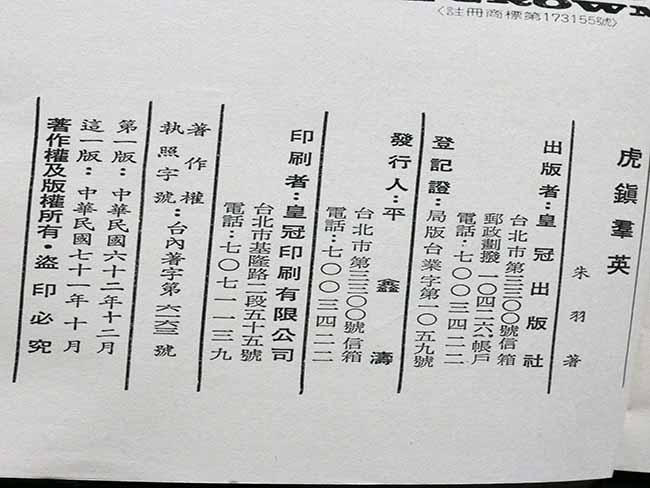 CROWN
〈註冊商標第173155號〉
虎鎭羣英
朱羽著
出版者：皇冠出版社
台北市第三三〇〇號信箱
郵政劃撥一〇四二六號帳戶
電話：七〇〇三四二二
登記證：局版台業字第一〇五九號
發行人：平鑫濤
台北市第三三〇〇號信箱
電話：七〇〇三四二二
印刷者：皇冠印刷有限公司
台北市基隆路二段五十五號
電話：七〇七一一三九
著作權
執照字號：台內著字第六二六三號
第一版：中華民國六十二年十二月
這一版：中華民國七十一年十月
著作權及版權所有・盜印必究